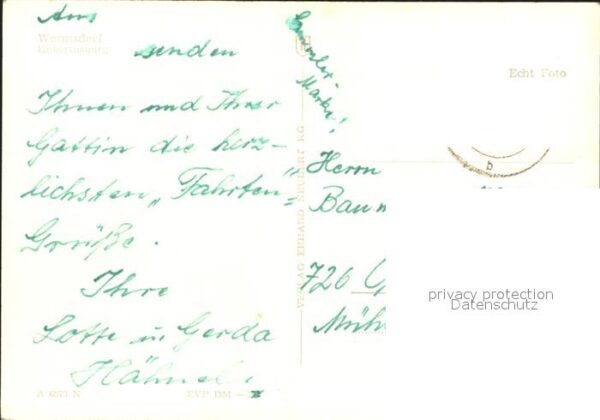 Aus
Wermsdorf
Hubertusburg
senden
Ihnen und Ihrer
Gattin die herz-
lichsten „Fahrten"-
Grüße.
Ihre
Lotte u. Gerda
Hähnel.
Sammler-
Marke!
Echt Foto
VERLAG ERHARD NEUBERT KG
b
Herrn
Baum
726
Mühl
privacy protection
Datenschutz
A 6573 N
EVP DM -